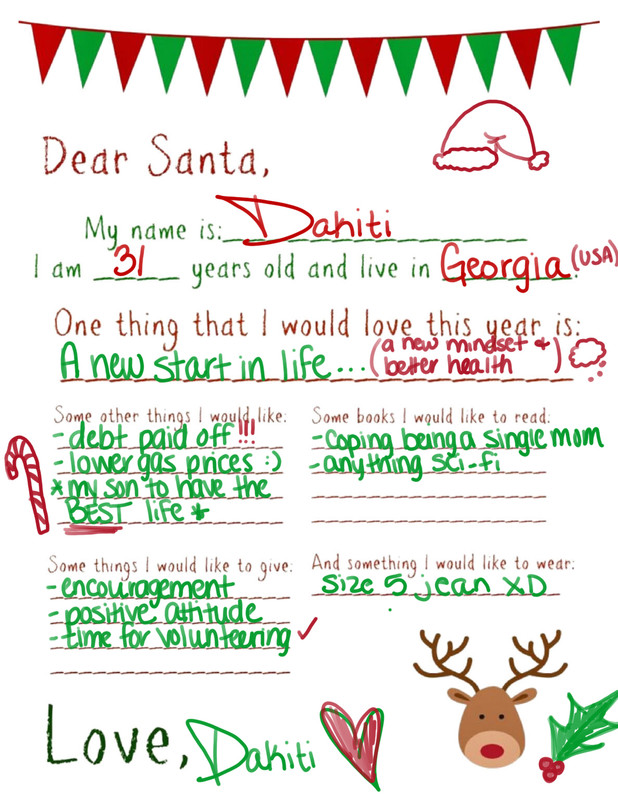 Dear Santa,
My name is: Dakiti
I am 31 years old and live in Georgia (USA).
One thing that I would love this year is:
A new start in life... (a new mindset +
better health)
Some other things I would like:
- debt paid off!!!
- lower gas prices :)
* my son to have the
BEST life *
Some books I would like to read:
- coping being a single mom
- anything sci-fi
Some things I would like to give:
- encouragement
- positive attitude
- time for volunteering ✓
And something I would like to wear:
size 5 jean XD
Love, Dakiti